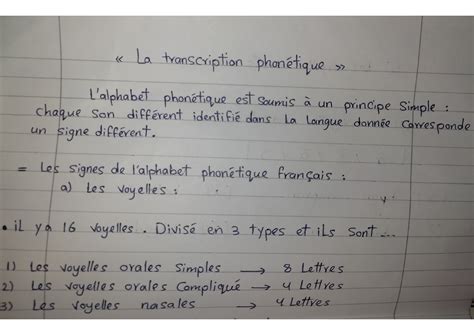 « La transcription phonétique »
L'alphabet phonétique est soumis à un principe simple :
chaque son différent identifié dans la langue donnée corresponde
un signe différent.
= Les signes de l'alphabet phonétique français :
a) Les voyelles :
• il y a 16 voyelles. Divisé en 3 types et ils sont...
1) Les voyelles orales simples → 8 Lettres
2) Les voyelles orales Compliqué → 4 Lettres
3) Les voyelles nasales → 4 Lettres